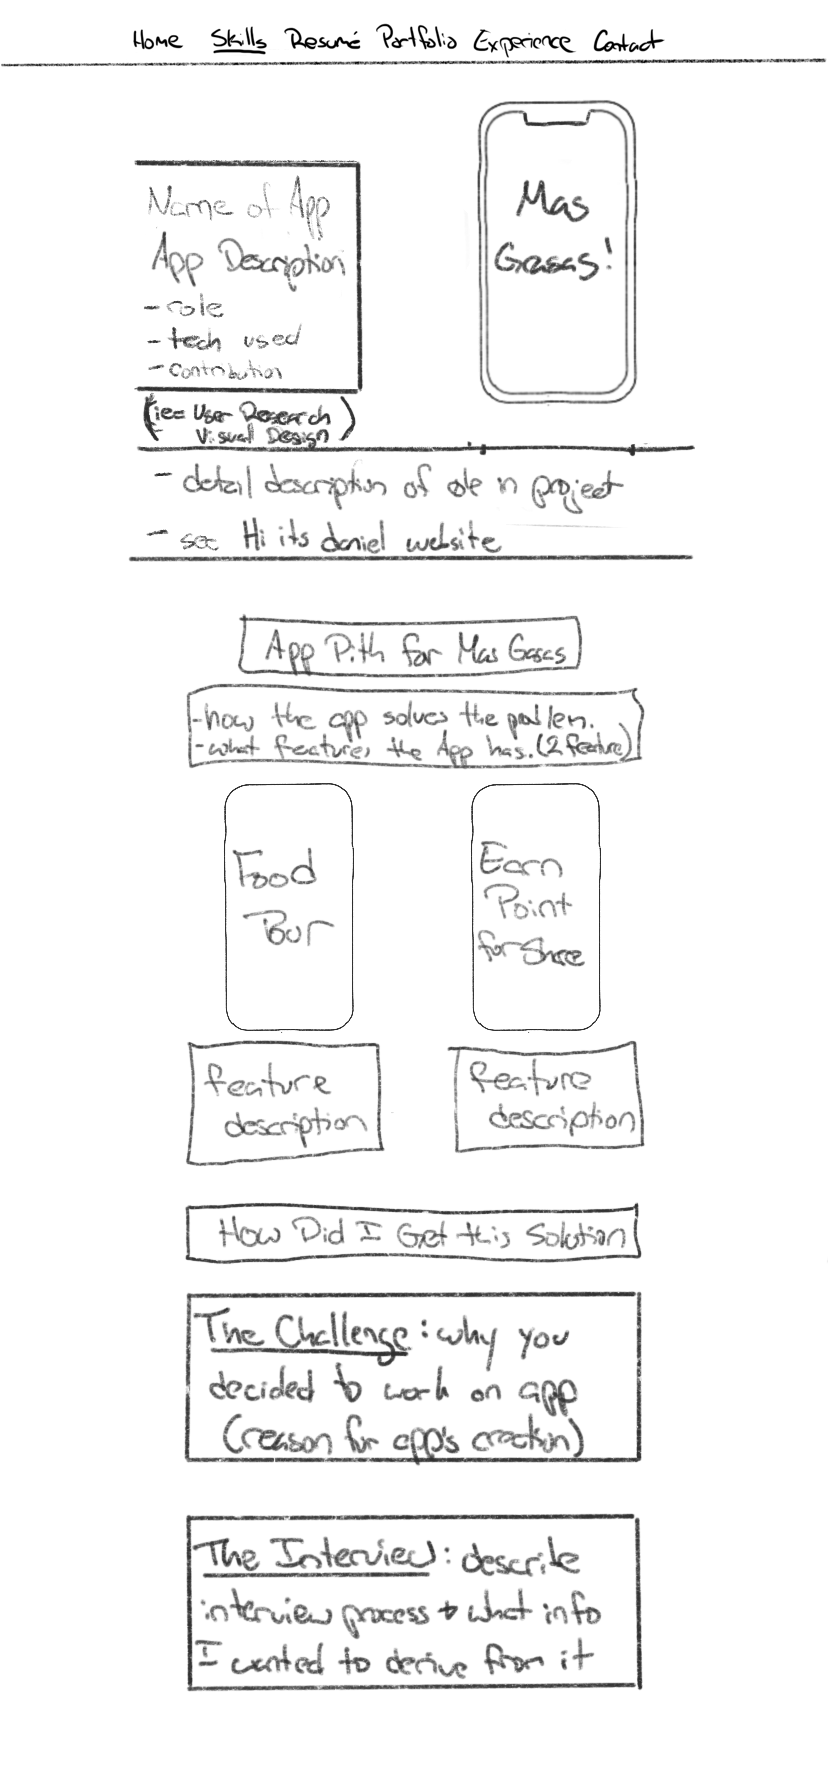 Home Skills Resumé Portfolio Experience Contact
Name of App
App Description
- role
- tech used
- contribution
(ie= User Research
Visual Design)
Mas
Grasas!
- detail description of role in project
- see Hi its daniel website
App Pith for Mas Grasas
- how the app solves the problem.
- what features the App has. (2 feature)
Food
Tour
Earn
Point
for Share
feature
description
feature
description
How Did I Get this Solution
The Challenge: why you
decided to work on app
(reason for app's creation)
The Interview: describe
interview process + what info
I wanted to derive from it